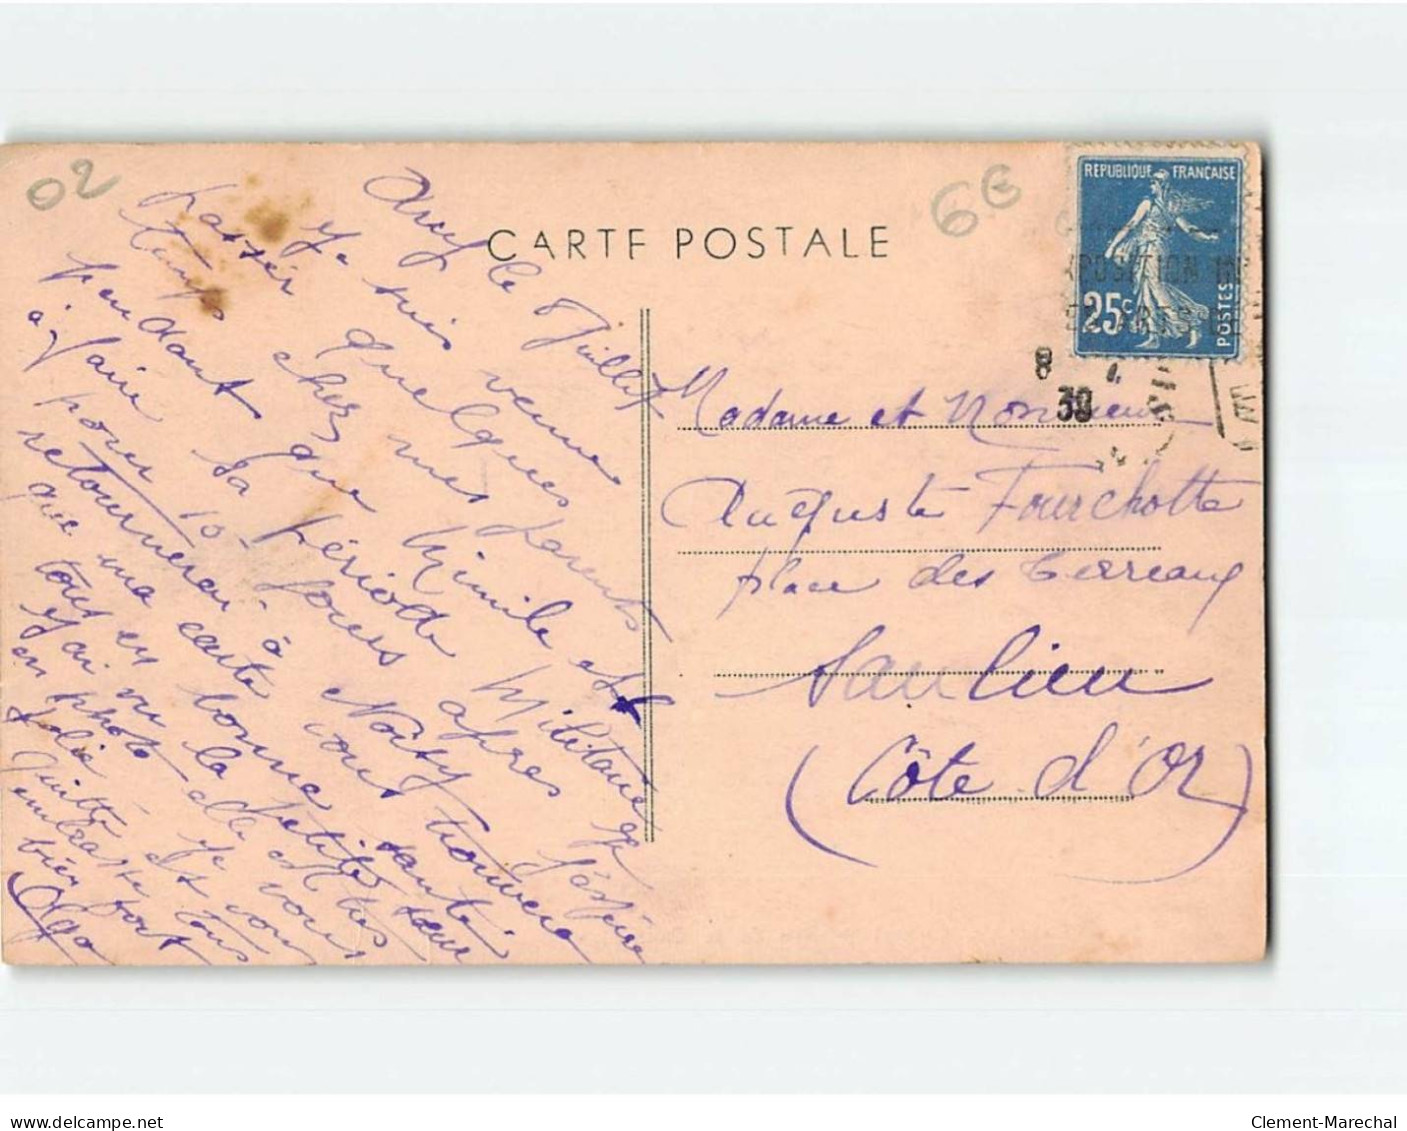 02
6€
CARTE POSTALE
REPUBLIQUE FRANÇAISE
25c
POSTES
POSITION IN
8
30
le Juillet
Je suis venue
passer quelques
temps chez mes parents
pendant que Mimile est
à faire sa période militaire
pour 10 jours après
retournerai à Noisy j'espère
que ma carte vous trouvera
tous en bonne santé
J'ai vu la petite sœur
en photo elle est très
jolie Je vous
quitte et vous
embrasse tous
bien fort
Olga
Madame et Monsieur
Auguste Fourchotte
place des Terreaux
Saulieu
(Côte d'Or)
delcampe.net
Clement-Marechal